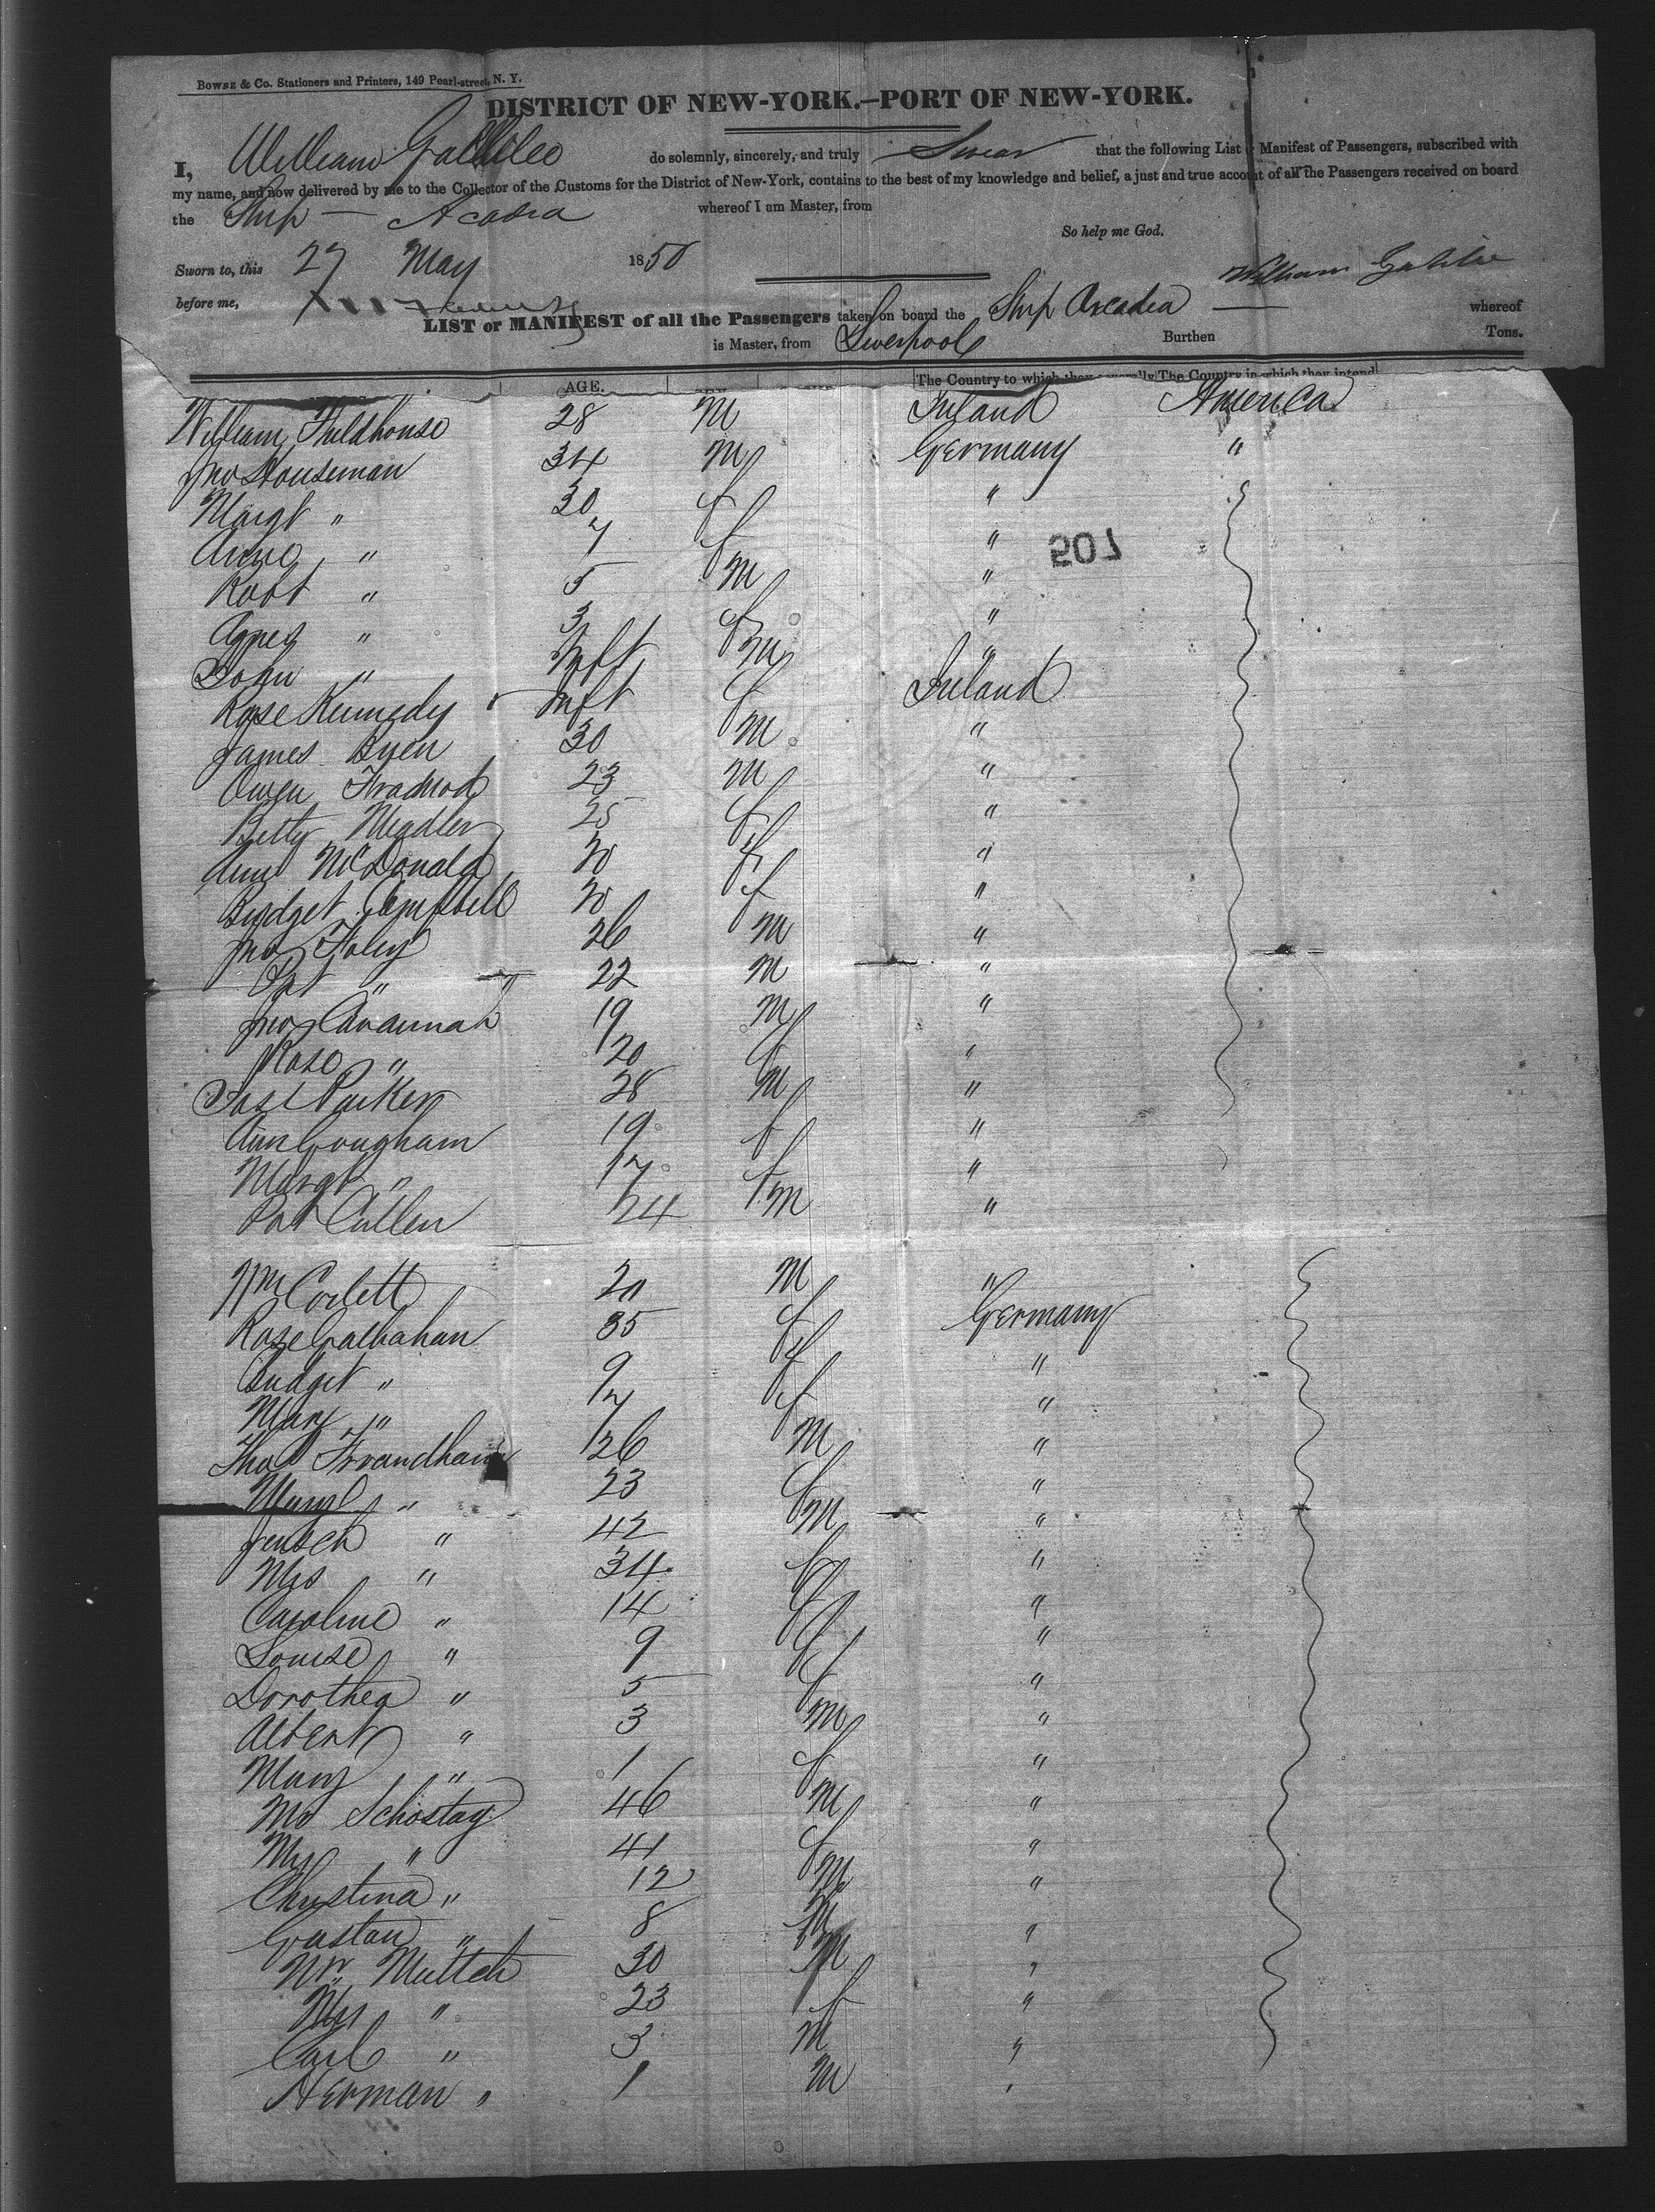 BOWNE & Co. Stationers and Printers, 149 Pearl-street, N. Y.
DISTRICT OF NEW-YORK.—PORT OF NEW-YORK.
I, William Gallilee do solemnly, sincerely, and truly Swear that the following List Manifest of Passengers, subscribed with
my name, and now delivered by me to the Collector of the Customs for the District of New-York, contains to the best of my knowledge and belief, a just and true account of all the Passengers received on board
the Ship — Acadia whereof I am Master, from
So help me God.
Sworn to, this 27 May 1850
William Galilee
before me,
LIST or MANIFEST of all the Passengers taken on board the Ship Arcadia — whereof
is Master, from Liverpool Burthen Tons.
AGE. The Country to which they The Country in which they intend
William Fieldhouse 28 M Ireland America
Jno Houseman 34 M Germany "
Margt " 30 f "
Anne " 7 f "
Robt " 5 M "
507
Agnes " 3 f "
John " Inft M "
Rose Kennedy Inft f Ireland
James 30 M "
Owen 23 M "
Betty 25 f "
Ann McDonald 20 f "
Bridget Campbell 20 f "
Jno Foley 26 M "
Pat " 22 M "
Jno Cavannah 19 M "
Rose " 20 f "
Jas Parker 28 M "
Ann Gougham 19 f "
Margt " 17 f "
Pat Cullen 24 M "
Wm Corlett 20 M "
Rose Gallahan 35 f Germany
Bridget " 9 f "
Mary " 7 f "
Thos 26 M "
Margt " 23 f "
42 M "
Mrs " 34 f "
Caroline " 14 f "
Louise " 9 f "
Dorothea " 5 f "
Albert " 3 M "
Mary " 1 f "
Mr Schostag 46 M "
Mrs " 41 f "
Christina " 12 "
Gustav " 8 M "
Mr Muttch 30 M "
Mrs " 23 f "
Carl " 3 M "
Herman " 1 M "